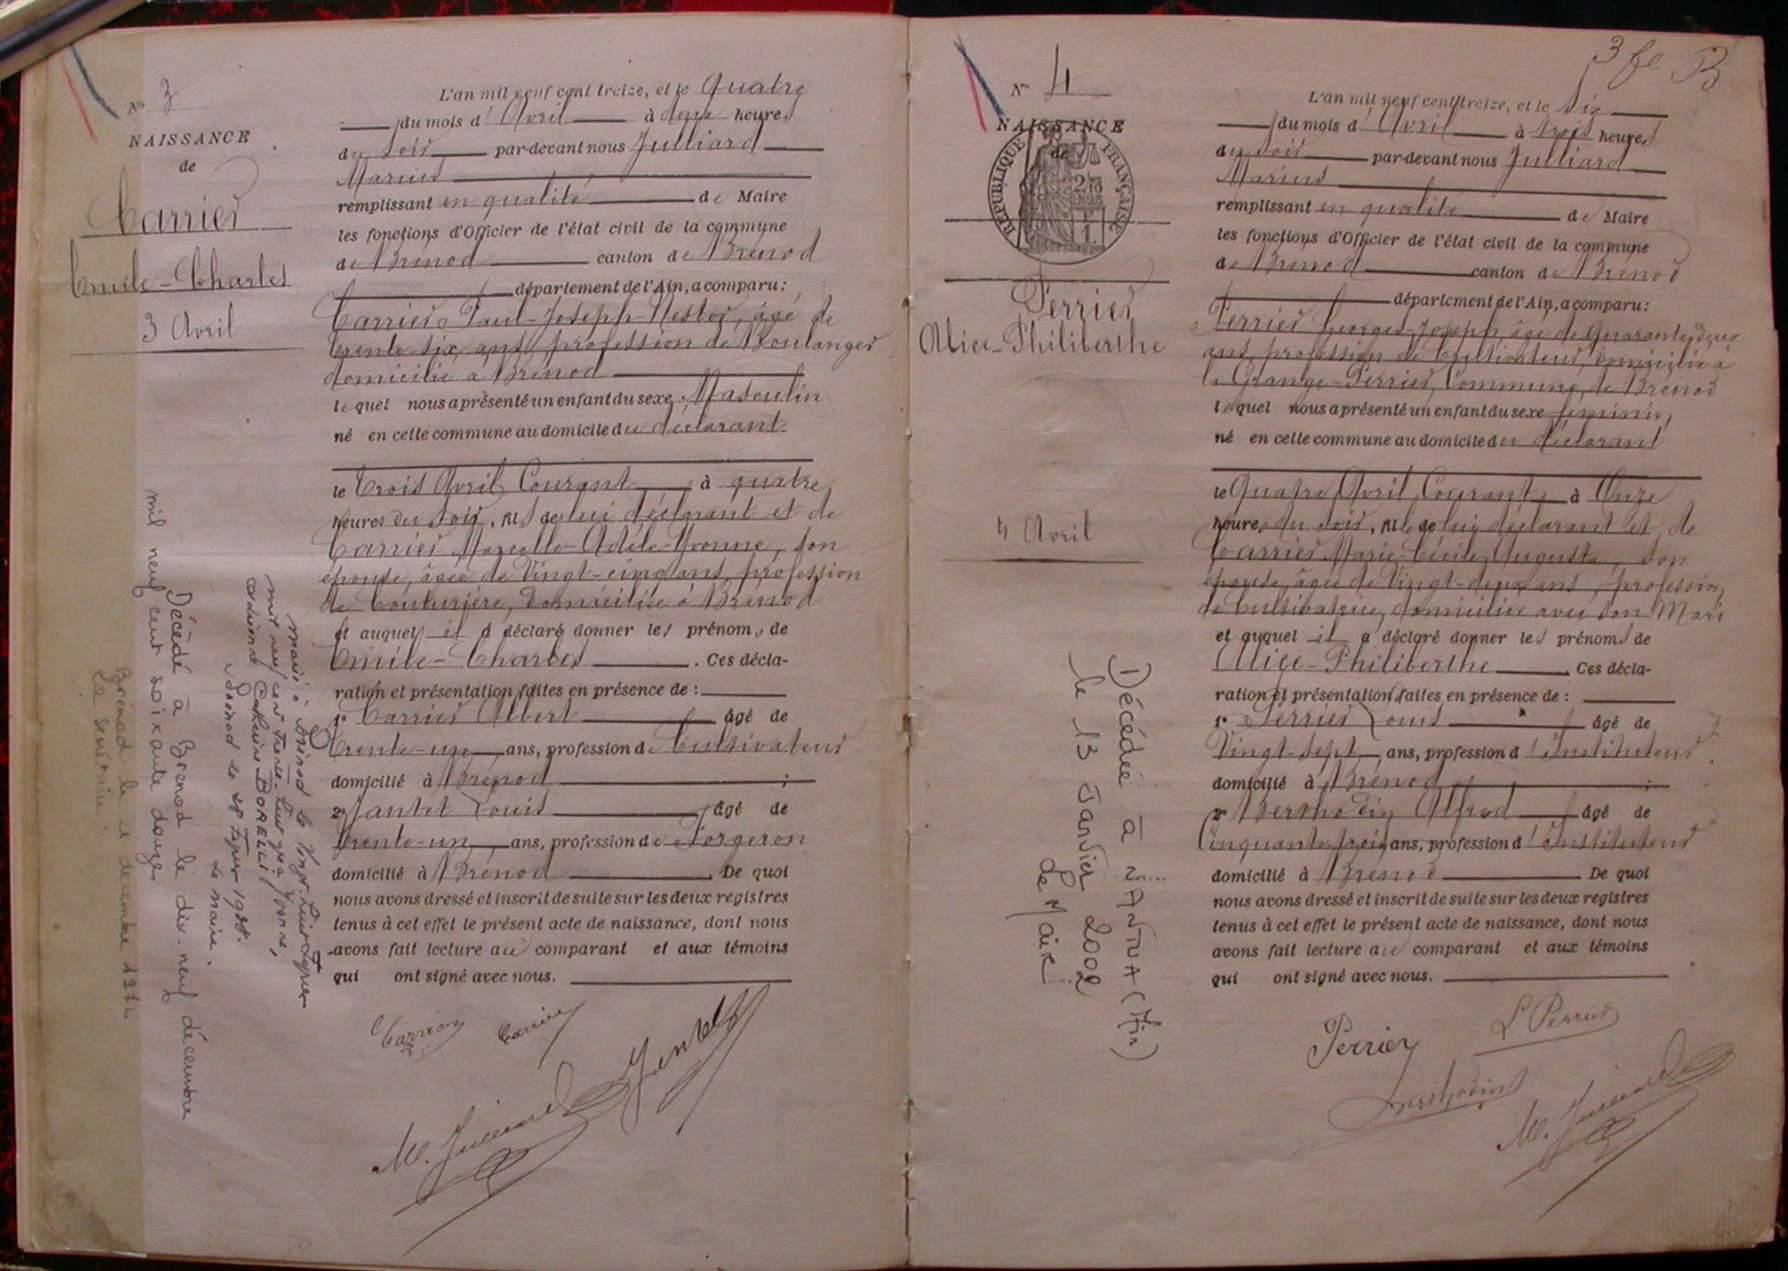 N° 3
NAISSANCE
de
Carrier
Emile-Charles
3 Avril
L'an mil neuf cent treize, et le Quatre
du mois d'Avril à deux heures
du soir par-devant nous Julliard
Marius
remplissant en qualité de Maire
les fonctions d'Officier de l'état civil de la commune
de Brénod canton de Brénod
département de l'Ain, a comparu:
Carrier Paul-Joseph-Nestor, âgé de
trente six ans, profession de Boulanger
domicilié à Brénod
lequel nous a présenté un enfant du sexe Masculin
né en cette commune au domicile du déclarant
le trois Avril Courant à quatre
heures du soir, fils de lui déclarant et de
Carrier Marcelle-Adèle-Yvonne, son
épouse, âgée de Vingt-cinq ans, profession
de Couturière, domiciliée à Brénod
et auquel il a déclaré donner les prénoms de
Emile-Charles. Ces décla-
ration et présentation faites en présence de:
1° Carrier Albert âgé de
trente-un ans, profession de Cultivateur
domicilié à Brénod;
2° Jantet Louis âgé de
trente-un ans, profession de Forgeron
domicilié à Brénod. De quoi
nous avons dressé et inscrit de suite sur les deux registres
tenus à cet effet le présent acte de naissance, dont nous
avons fait lecture au comparant et aux témoins
qui ont signé avec nous.
Carrier Carrier
M. Julliard Jantet
Marié à Brénod le Vingt-huit Février
mil neuf cent trente-huit avec Yvonne,
Catherine BORELLI
Brénod le 28 Février 1938.
Le Maire.
Décédé à Brénod le dix-neuf décembre
mil neuf cent soixante douze
Brénod le décembre 197
Le secrétaire.
3 fe B
N° 4
NAISSANCE
de
RÉPUBLIQUE FRANÇAISE
Perrier
Alice-Philiberthe
4 Avril
L'an mil neuf cent treize, et le Six
du mois d'Avril à trois heures
du soir par-devant nous Julliard
Marius
remplissant en qualité de Maire
les fonctions d'Officier de l'état civil de la commune
de Brénod canton de Brénod
département de l'Ain, a comparu:
Perrier Georges-Joseph, âgé de Quarante-deux
ans, profession de Cultivateur, domicilié à
la Grange-Perrier, Commune de Brénod
lequel nous a présenté un enfant du sexe féminin
né en cette commune au domicile du déclarant
le Quatre Avril Courant à Onze
heures du soir, fille de lui déclarant et de
Carrier Marie-Cécile Augusta, son
épouse, âgée de Vingt-deux ans, profession
de Cultivatrice, domiciliée avec son Mari
et auquel il a déclaré donner les prénoms de
Alice-Philiberthe. Ces décla-
ration et présentation faites en présence de:
1° Perrier Louis âgé de
Vingt-sept ans, profession d'Instituteur
domicilié à Brénod;
2° Berthodin Alfred âgé de
Cinquante-trois ans, profession d'Instituteur
domicilié à Brénod. De quoi
nous avons dressé et inscrit de suite sur les deux registres
tenus à cet effet le présent acte de naissance, dont nous
avons fait lecture au comparant et aux témoins
qui ont signé avec nous.
Perrier L. Perrier
Berthodin
M. Julliard
Décédée à NANTUA (Ain)
le 13 Janvier 2002
Le Maire